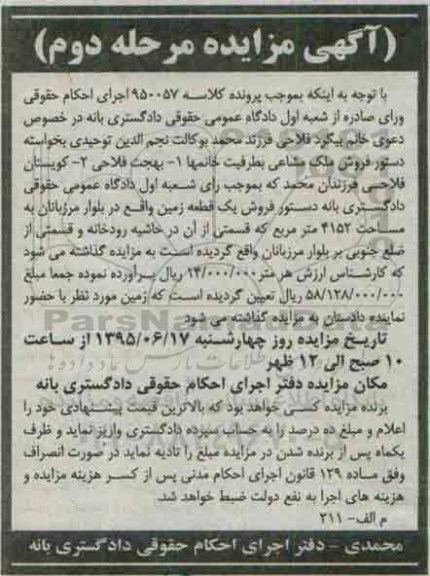 (آگهی مزایده مرحله دوم)
با توجه به اینکه بموجب پرونده کلاسه ۹۵۰۰۵۷ اجرای احکام حقوقی
ورای صادره از شعبه اول دادگاه عمومی حقوقی دادگستری بانه در خصوص
دعوی خانم بیگرد فلاحی فرزند محمد بوکالت نجم الدین توحیدی بخواسته
دستور فروش ملک مشاعی بطرفیت خانمها ۱- بهجت فلاحی ۲- کویستان
فلاحی فرزندان محمد که بموجب رای شعبه اول دادگاه عمومی حقوقی
دادگستری بانه دستور فروش یک قطعه زمین واقع در بلوار مرزبانان به
مساحت ۴۱۵۲ متر مربع که قسمتی از آن در حاشیه رودخانه و قسمتی از
ضلع جنوبی بر بلوار مرزبانان واقع گردیده است به مزایده گذاشته می شود
که کارشناس ارزش هر متر ۱۴/۰۰۰/۰۰۰ ریال برآورده نموده جمعا مبلغ
۵۸/۱۲۸/۰۰۰/۰۰۰ ریال تعیین گردیده است که زمین مورد نظر با حضور
نماینده دادستان به مزایده گذاشته می شود
تاریخ مزایده روز چهارشنبه ۱۳۹۵/۰۶/۱۷ از ساعت
۱۰ صبح الی ۱۲ ظهر
مکان مزایده دفتر اجرای احکام حقوقی دادگستری بانه
برنده مزایده کسی خواهد بود که بالاترین قیمت پیشنهادی خود را
اعلام و مبلغ ده درصد را به حساب سپرده دادگستری واریز نماید و ظرف
یکماه پس از برنده شدن در مزایده مبلغ را تادیه نماید در صورت انصراف
وفق ماده ۱۲۹ قانون اجرای احکام مدنی پس از کسر هزینه مزایده و
هزینه های اجرا به نفع دولت ضبط خواهد شد.
م الف- ۲۱۱
محمدی - دفتر اجرای احکام حقوقی دادگستری بانه
ParsNamadData